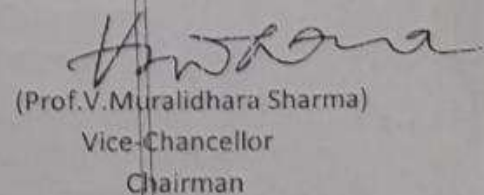 (Prof.V.Muralidhara Sharma)
Vice-Chancellor
Chairman